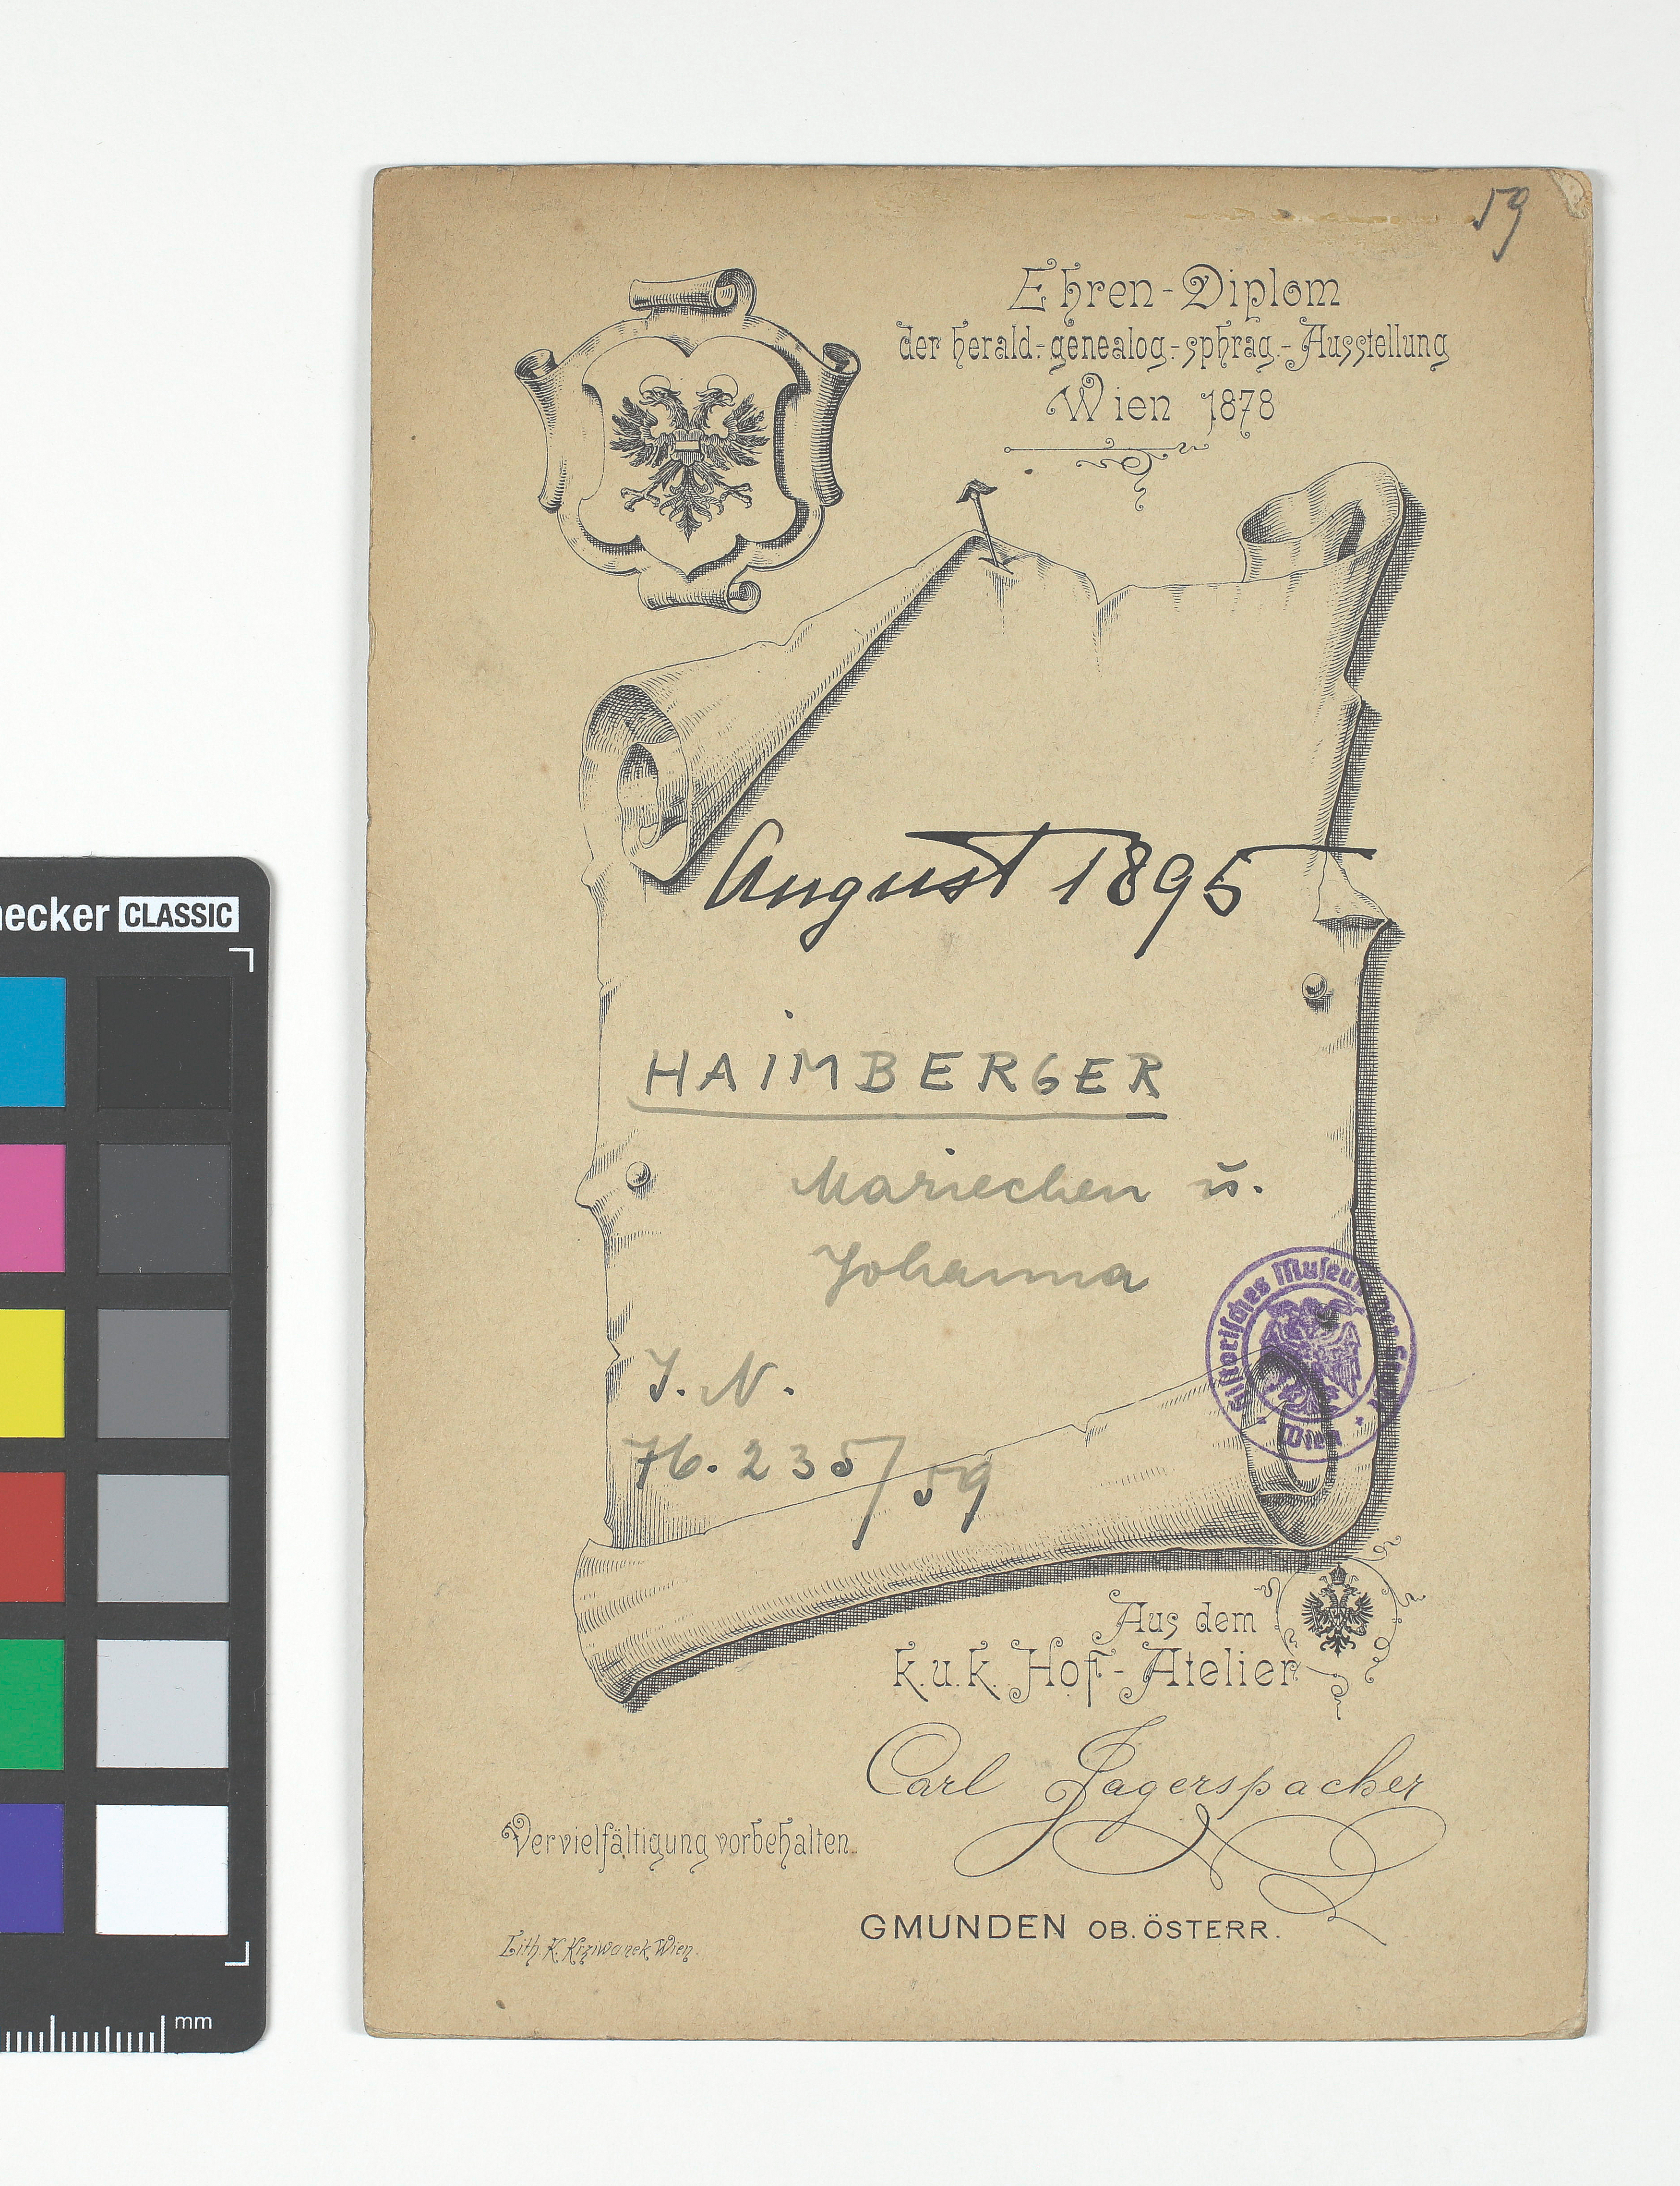 59
Ehren-Diplom
der herald.-genealog.-sphrag.-Ausstellung
Wien 1878
August 1895
HAIMBERGER
Mariechen u.
Johanna
J. N.
76.235/59
Historisches Museum der Stadt
Wien
Aus dem
k.u.k. Hof-Atelier
Carl Jagerspacher
Vervielfältigung vorbehalten.
GMUNDEN OB. ÖSTERR.
Lith. K. Krziwanek, Wien.
necker CLASSIC
mm